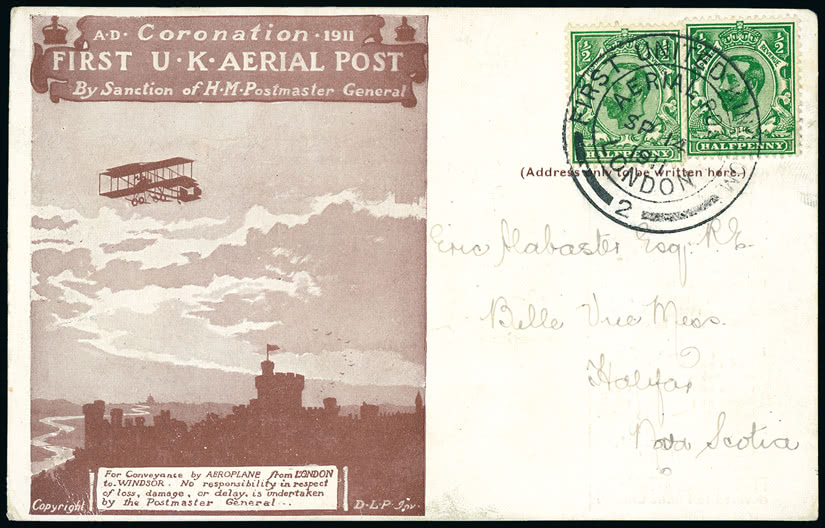 A·D· Coronation · 1911
FIRST U·K·AERIAL POST
By Sanction of H·M·Postmaster General
For Conveyance by AEROPLANE from LONDON
to WINDSOR. No responsibility in respect
of loss, damage, or delay, is undertaken
by the Postmaster General...
Copyright
D·L·P·
½
½
½
½
HALFPENNY
HALFPENNY
FIRST UNITED
AERIAL
SP 12
1911
LONDON
2
(Address only to be written here.)
Eric Alabaster Esq. R.E.
Belle Vue Mess.
Halifax
Nova Scotia